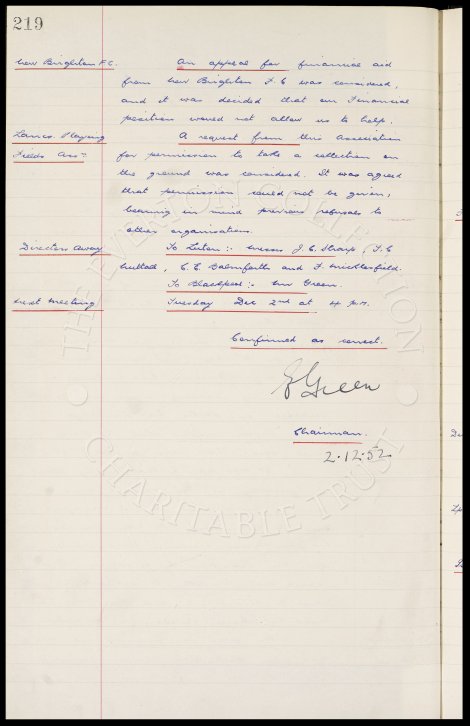 219
New Brighton F.C. An appeal for financial aid
from New Brighton F.C was considered,
and it was decided that our Financial
position would not allow us to help.
Lancs. Playing A request from this Association
Fields Assn: for permission to take a collection on
the ground was considered. It was agreed
that permission could not be given,
bearing in mind previous refusals to
other organisations.
Directors Away To Luton:- Messrs J.C. Sharp, F.C
Nuttall, C.E. Balmforth and F. Micklesfield.
To Blackpool:- Mr Green.
Next Meeting Tuesday Dec 2nd at 4 p.m.
Confirmed as correct.
E Green
Chairman.
2.12.52
THE EVERTON COLLECTION
CHARITABLE TRUST